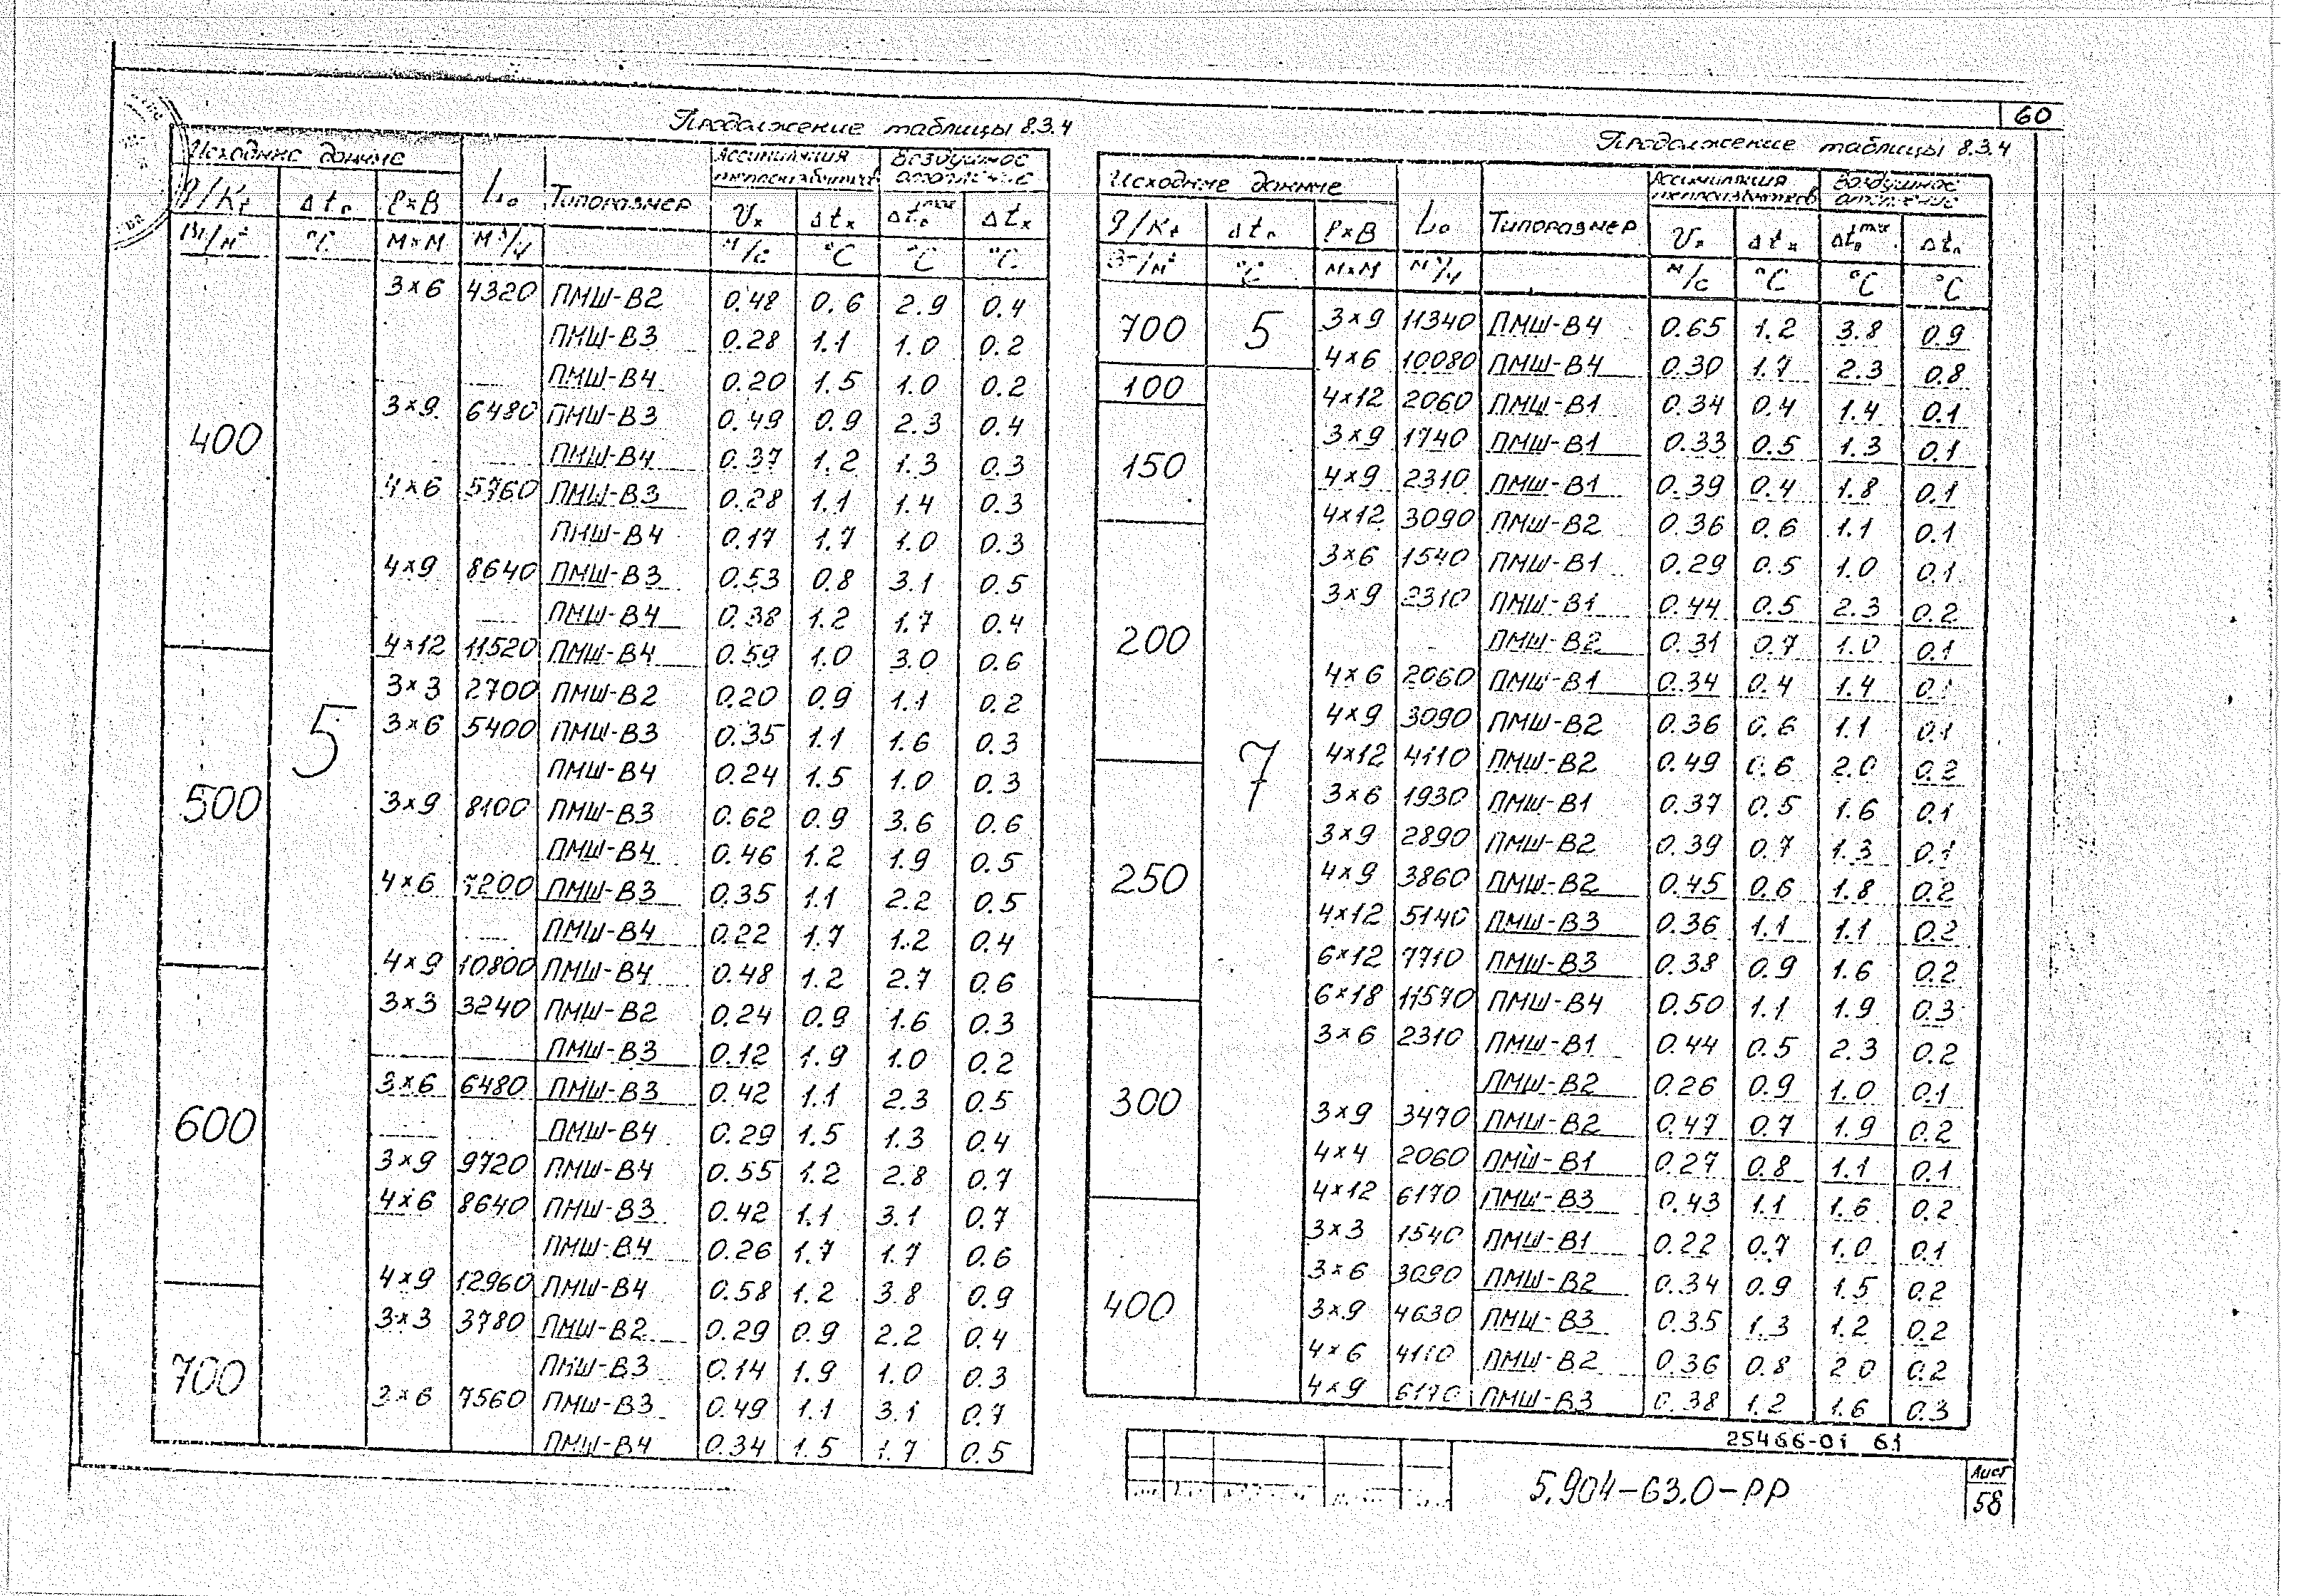 60
Продолжение таблицы 8.3.4
Исходные данные L₀ Типоразмер Ассимиляция теплоизбытков Воздушное отопление
q/Kt Δtп ℓ×B Vx Δtx Δtп max Δtx
Вт/м² °С м×м м³/ч м/с °С °С °С
400 5 3×6 4320 ПМШ-В2 0.48 0.6 2.9 0.4
ПМШ-В3 0.28 1.1 1.0 0.2
ПМШ-В4 0.20 1.5 1.0 0.2
3×9 6480 ПМШ-В3 0.49 0.9 2.3 0.4
ПМШ-В4 0.37 1.2 1.3 0.3
4×6 5760 ПМШ-В3 0.28 1.1 1.4 0.3
ПМШ-В4 0.17 1.7 1.0 0.3
4×9 8640 ПМШ-В3 0.53 0.8 3.1 0.5
ПМШ-В4 0.38 1.2 1.7 0.4
4×12 11520 ПМШ-В4 0.59 1.0 3.0 0.6
500 3×3 2700 ПМШ-В2 0.20 0.9 1.1 0.2
3×6 5400 ПМШ-В3 0.35 1.1 1.6 0.3
ПМШ-В4 0.24 1.5 1.0 0.3
3×9 8100 ПМШ-В3 0.62 0.9 3.6 0.6
ПМШ-В4 0.46 1.2 1.9 0.5
4×6 7200 ПМШ-В3 0.35 1.1 2.2 0.5
ПМШ-В4 0.22 1.7 1.2 0.4
4×9 10800 ПМШ-В4 0.48 1.2 2.7 0.6
600 3×3 3240 ПМШ-В2 0.24 0.9 1.6 0.3
ПМШ-В3 0.12 1.9 1.0 0.2
3×6 6480 ПМШ-В3 0.42 1.1 2.3 0.5
ПМШ-В4 0.29 1.5 1.3 0.4
3×9 9720 ПМШ-В4 0.55 1.2 2.8 0.7
4×6 8640 ПМШ-В3 0.42 1.1 3.1 0.7
ПМШ-В4 0.26 1.7 1.7 0.6
4×9 12960 ПМШ-В4 0.58 1.2 3.8 0.9
700 3×3 3780 ПМШ-В2 0.29 0.9 2.2 0.4
ПМШ-В3 0.14 1.9 1.0 0.3
3×6 7560 ПМШ-В3 0.49 1.1 3.1 0.7
ПМШ-В4 0.34 1.5 1.7 0.5
Продолжение таблицы 8.3.4
Исходные данные L₀ Типоразмер Ассимиляция теплоизбытков Воздушное отопление
q/Kt Δtп ℓ×B Vx Δtx Δtп max Δtп
Вт/м² °С м×м м³/ч м/с °С °С °С
700 5 3×9 11340 ПМШ-В4 0.65 1.2 3.8 0.9
4×6 10080 ПМШ-В4 0.30 1.7 2.3 0.8
100 7 4×12 2060 ПМШ-В1 0.34 0.4 1.4 0.1
150 3×9 1740 ПМШ-В1 0.33 0.5 1.3 0.1
4×9 2310 ПМШ-В1 0.39 0.4 1.8 0.1
4×12 3090 ПМШ-В2 0.36 0.6 1.1 0.1
200 3×6 1540 ПМШ-В1 0.29 0.5 1.0 0.1
3×9 2310 ПМШ-В1 0.44 0.5 2.3 0.2
ПМШ-В2 0.31 0.7 1.0 0.1
4×6 2060 ПМШ-В1 0.34 0.4 1.4 0.1
4×9 3090 ПМШ-В2 0.36 0.6 1.1 0.1
4×12 4110 ПМШ-В2 0.49 0.6 2.0 0.2
250 3×6 1930 ПМШ-В1 0.37 0.5 1.6 0.1
3×9 2890 ПМШ-В2 0.39 0.7 1.3 0.1
4×9 3860 ПМШ-В2 0.45 0.6 1.8 0.2
4×12 5140 ПМШ-В3 0.36 1.1 1.1 0.2
6×12 7710 ПМШ-В3 0.38 0.9 1.6 0.2
6×18 11570 ПМШ-В4 0.50 1.1 1.9 0.3
300 3×6 2310 ПМШ-В1 0.44 0.5 2.3 0.2
ПМШ-В2 0.26 0.9 1.0 0.1
3×9 3470 ПМШ-В2 0.47 0.7 1.9 0.2
4×4 2060 ПМШ-В1 0.27 0.8 1.1 0.1
4×12 6170 ПМШ-В3 0.43 1.1 1.6 0.2
400 3×3 1540 ПМШ-В1 0.22 0.7 1.0 0.1
3×6 3090 ПМШ-В2 0.34 0.9 1.5 0.2
3×9 4630 ПМШ-В3 0.35 1.3 1.2 0.2
4×6 4110 ПМШ-В2 0.36 0.8 2.0 0.2
4×9 6170 ПМШ-В3 0.38 1.2 1.6 0.3
25466-01 61
5.904-63.0-РР
Лист
58